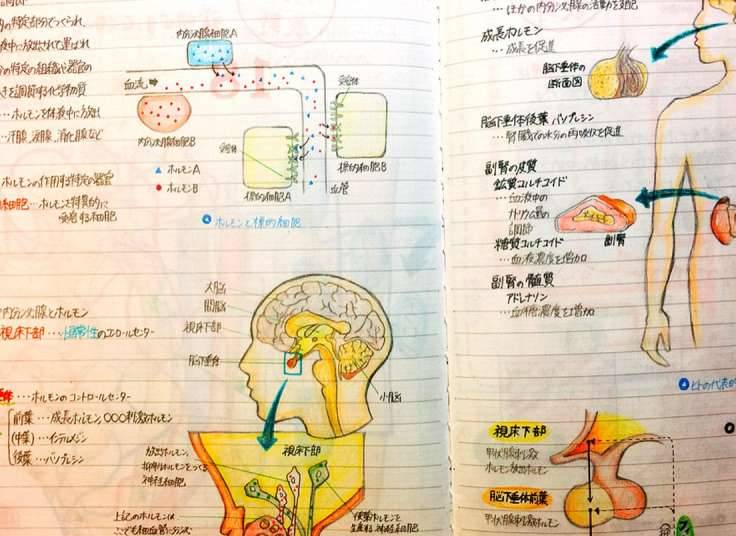 内分泌腺細胞A
血流
受容体
内分泌腺細胞B
受容体
標的細胞B
標的細胞A
血管
▲ ホルモンA
● ホルモンB
の特定部分でつくられ、
液中に放出されて運ばれ
の特定の組織や器官の
きを調節する化学物質
…ホルモンを体液中に放出
…汗腺、涙腺、消化腺など
ホルモンの作用する特定の器官
細胞…ホルモンを特異的に
受容する細胞
ホルモンと標的細胞
内分泌腺とホルモン
視床下部…恒常性のコントロールセンター
大脳
間脳
視床下部
脳下垂体
小脳
垂体…ホルモンのコントロールセンター
前葉…成長ホルモン、〇〇〇刺激ホルモン
(中葉)…インテルメジン
後葉…バソプレシン
視床下部
放出ホルモン、
抑制ホルモンをつくる
神経細胞
上記のホルモンは
ここで毛細血管に分泌
後葉ホルモンを
…ほかの内分泌腺の活動を支配
成長ホルモン
…成長を促進
脳下垂体の
断面図
脳下垂体後葉 バソプレシン
…腎臓での水分の再吸収を促進
副腎の皮質
鉱質コルチコイド
…血液中の
ナトリウム量の
調節
糖質コルチコイド
…血液濃度を増加
副腎
副腎の髄質
アドレナリン
…血糖濃度を増加
ヒトの代表が
視床下部
甲状腺刺激
ホルモン放出ホルモン
脳下垂体前葉
甲状腺刺激ホルモン